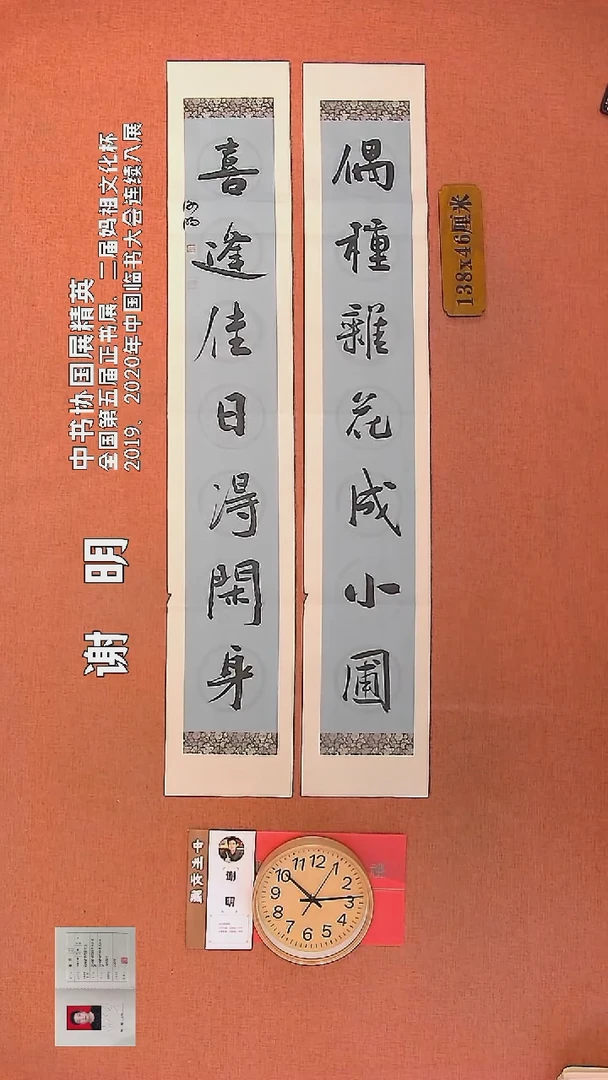 偶種雜花成小圃
喜逢佳日得閑身
138x46厘米
中书协国展精英
全国第五届正书展、二届妈祖文化杯
2019、2020年中国临书大会连续入展
谢 明
谢明
12
1
2
3
4
5
6
7
8
9
10
11